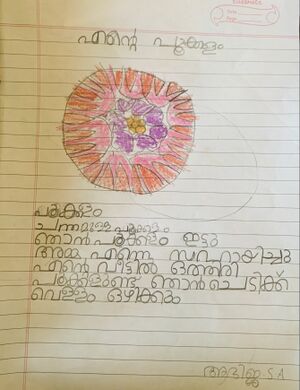 എന്റെ പൂക്കളം
പൂക്കളം
ചന്തമുള്ള പൂക്കളം
ഞാൻ പൂക്കളം ഇട്ടു
അമ്മ എന്നെ സഹായിച്ചു
എന്റെ വീട്ടിൽ ഒത്തിരി
പൂക്കളുണ്ട് ഞാൻ ചെടിക്ക്
വെള്ളം ഒഴിക്കും